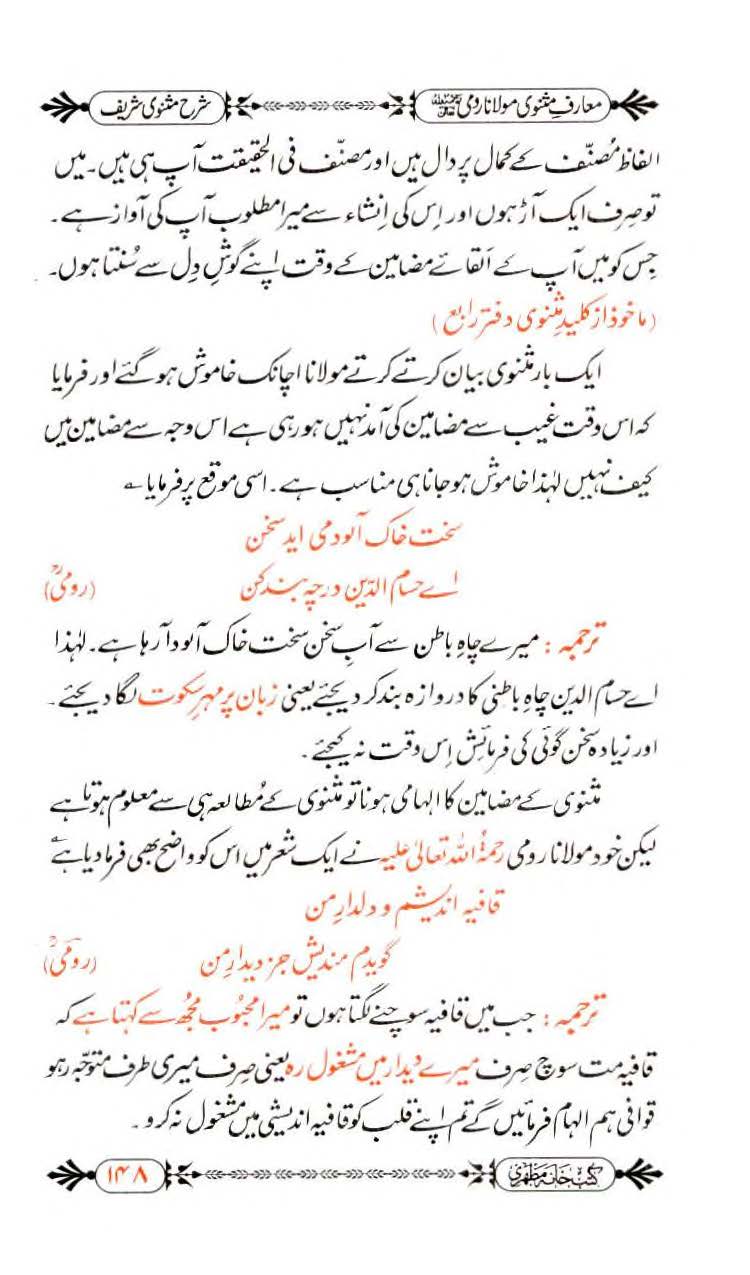 معارفِ مثنوی مولانا رومی شرح مثنوی شریف
الفاظ مُصنّف کے کمال پر دال ہیں اور مصنّف فی الحقیقت آپ ہی ہیں۔ میں
تو صِرف ایک آڑ ہوں اور اِس کی اِنشاء سے میرا مطلوب آپ کی آواز ہے۔
جِس کو میں آپ کے اَلقائے مضامین کے وقت اپنے گوشِ دِل سے سُنتا ہوں۔
(ماخوذ از کلیدِ مثنوی دفتر رابع)
ایک بار مثنوی بیان کرتے کرتے مولانا اچانک خاموش ہو گئے اور فرمایا
کہ اس وقت غیب سے مضامین کی آمد نہیں ہو رہی ہے اس وجہ سے مضامین میں
کیف نہیں لہٰذا خاموش ہو جانا ہی مناسب ہے۔ اسی موقع پر فرمایا ؎
سخت خاک آلود می اید سخن
اے حسام الدّین در چہ بند کن (رومیؒ)
ترجمہ : میرے چاہِ باطن سے آبِ سخن سخت خاک آلود آ رہا ہے۔ لہٰذا
اے حسام الدین چاہِ باطنی کا دروازہ بند کر دیجئے یعنی زبان پر مہرِ سکوت لگا دیجئے۔
اور زیادہ سخن گوئی کی فرمائش اِس وقت نہ کیجئے۔
مثنوی کے مضامین کا الہامی ہونا تو مثنوی کے مُطالعہ ہی سے معلوم ہوتا ہے
لیکن خود مولانا رومی رحمۃُ اللہ تعالیٰ علیہ نے ایک شعر میں اس کو واضح بھی فرما دیا ہے ؎
قافیہ اندیشم و دلدارِ من
گویدم مندیش جز دیدارِ من (رومیؒ)
ترجمہ : جب میں قافیہ سوچنے لگتا ہوں تو میرا محبُوب مجُھ سے کہتا ہے کہ
قافیہ مت سوچ صِرف میرے دیدار میں مشغول رہ یعنی صِرف میری طرف متوجّہ رہو
قوافی ہم الہام فرمائیں گے تم اپنے قلب کو قافیہ اندیشی میں مشغول نہ کرو۔
کتب خانہ مظہری ۱۴۸